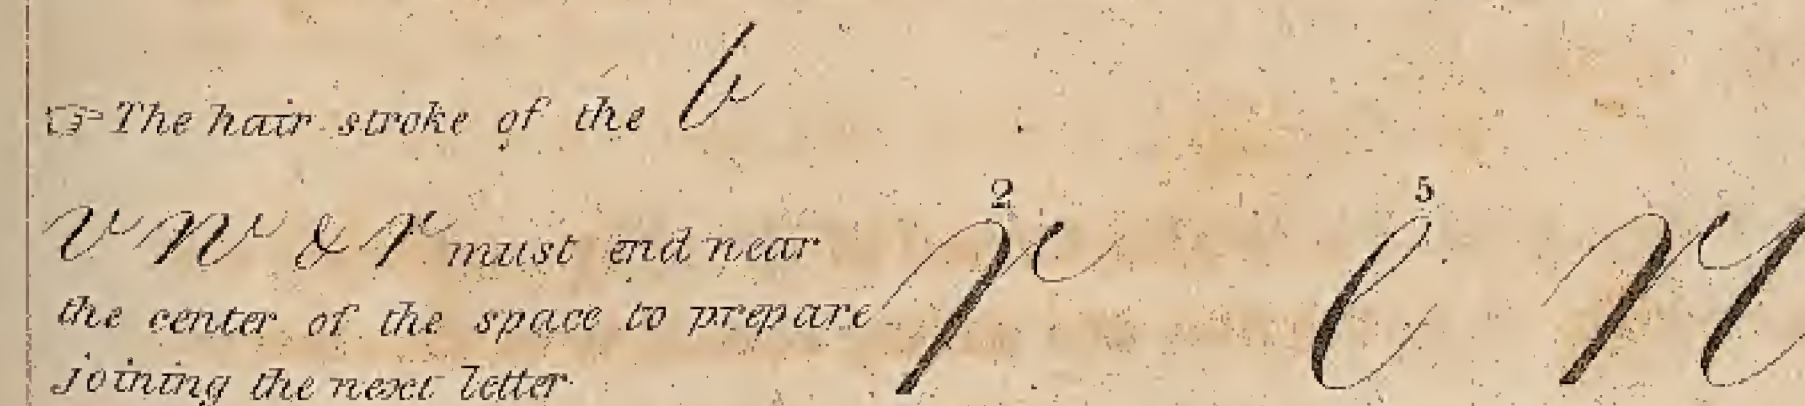 ☞ The hair stroke of the b
v w & r must end near
the center of the space to prepare
joining the next letter
2 5
r c